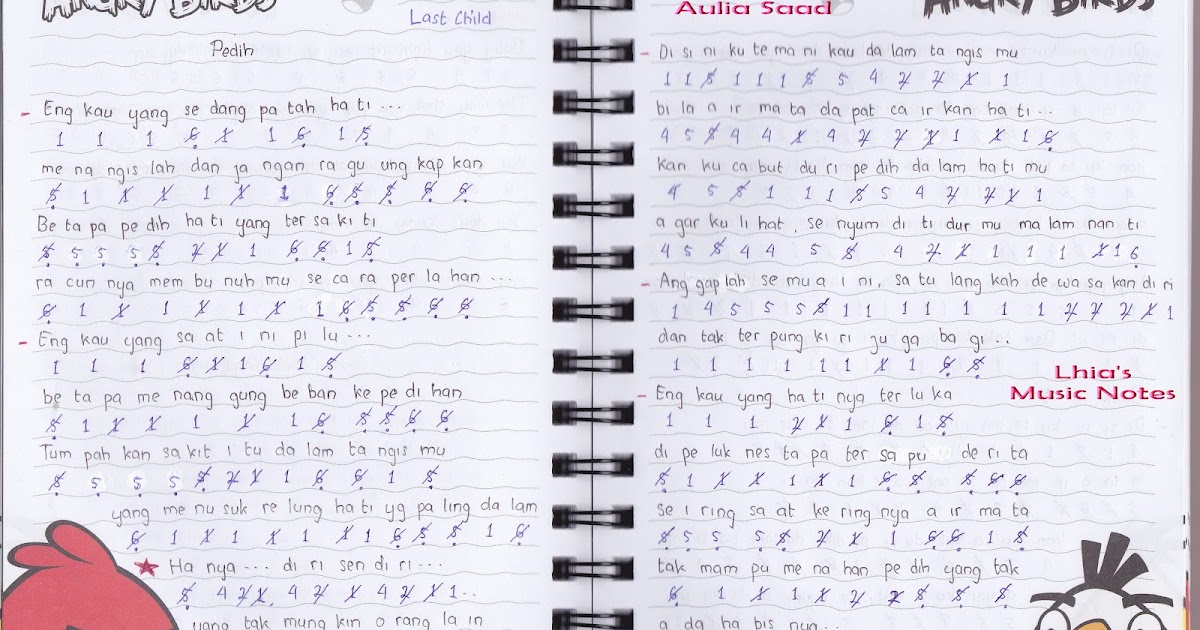 ANGRY BIRDS
Last Child
Pedih
- Eng kau yang se dang pa tah ha ti ...
1 1 1 6 1 1 6 1 5
me na ngis lah dan ja ngan ra gu ung kap kan
5 1 1 1 1 1 1 6 5 5 6 6
Be ta pa pe dih ha ti yang ter sa ki ti
5 5 5 5 5 2 1 1 6 6 1 5
ra cun nya mem bu nuh mu se ca ra per la han ...
6 1 1 1 1 1 1 1 6 5 5 6 6
- Eng kau yang sa at i ni pi lu ...
1 1 1 6 1 1 6 1 5
be ta pa me nang gung be ban ke pe di han
5 1 1 1 1 1 1 6 5 5 6 6
Tum pah kan sa kit i tu da lam ta ngis mu
5 5 5 5 5 2 1 1 6 6 1 5
yang me nu suk re lung ha ti yg pa ling da lam
6 1 1 1 1 1 1 6 5 5 1 6
Ha nya ... di ri sen di ri ...
5 4 2 1, 4 2 1 4 2 1 1..
yang tak mung kin o rang la in
ANGRY BIRDS
Aulia Saad
- Di si ni ku te ma ni kau da lam ta ngis mu
1 1 5 1 1 1 5 5 4 2 2 1 1
bi la a ir ma ta da pat ca ir kan ha ti ...
4 5 5 4 4 1 4 2 2 1 1 1 1 6
kan ku ca but du ri pe dih da lam ha ti mu
4 5 5 1 1 1 5 5 4 2 2 1 1
a gar ku li hat, se nyum di ti dur mu ma lam nan ti
4 5 5 4 4 5 5 4 2 1 1 1 1 1 6
- Ang gap lah se mu a i ni, sa tu lang kah de wa sa kan di ri
1 4 5 5 5 5 1 1 1 1 1 1 1 1 2 2 2 1 1
dan tak ter pung ki ri ju ga ba gi ..
1 1 1 1 1 1 1 1 6 5
Lhia's
Music Notes
- Eng kau yang ha ti nya ter lu ka
1 1 1 2 1 1 6 1 5
di pe luk nes ta pa ter sa pu de ri ta
5 1 1 1 1 1 1 6 5 5 6 6
se i ring sa at ke ring nya a ir ma ta
5 5 5 5 5 2 1 1 6 6 1 5
tak mam pu me na han pe dih yang tak
6 1 1 1 1 2 2 5 5 5
a da ha bis nya ..